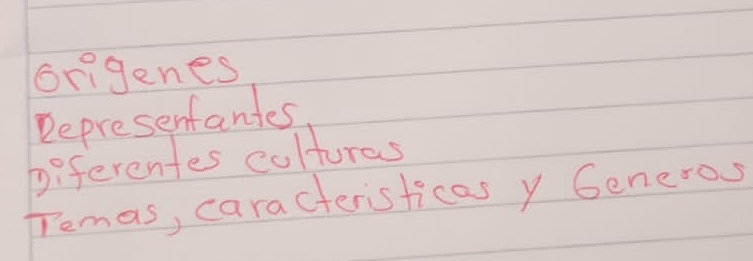 Origenes
Representantes,
Diferentes culturas
Temas, caracteristicas y Generos